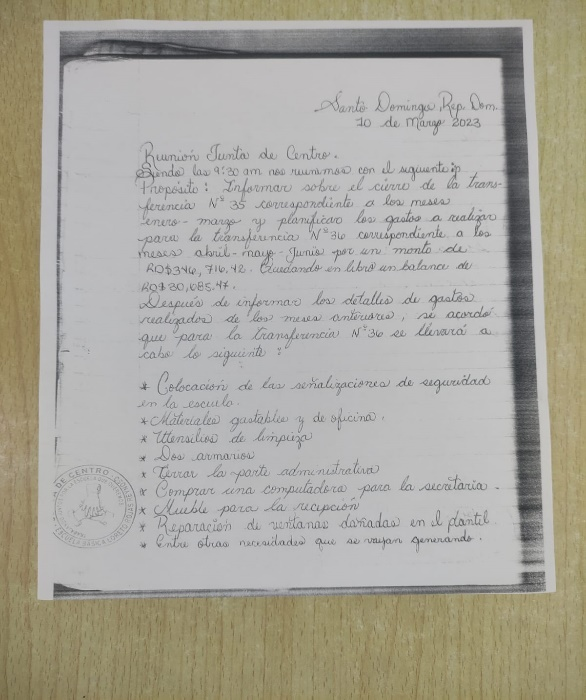 Santo Domingo, Rep. Dom.
10 de Marzo 2023
Reunión Junta de Centro.
Siendo las 9:30 am nos reunimos con el siguiente
Propósito: Informar sobre el cierre de la trans-
ferencia N° 35 correspondiente a los meses
enero - marzo y planificar los gastos a realizar
para la transferencia N° 36 correspondiente a los
meses abril - mayo - Junio por un monto de
RD$346,716.42. Quedando en libro un balance de
RD$30,685.47.
Después de informar los detalles de gastos
realizados de los meses anteriores, se acordó
que para la transferencia N° 36 se llevará a
cabo lo siguiente:
* Colocación de las señalizaciones de seguridad
en la escuela.
* Materiales gastables y de oficina.
* Utensilios de limpieza
* Dos armarios
* Cerrar la parte administrativa
* Comprar una computadora para la secretaria.
* Mueble para la recepción
* Reparación de ventanas dañadas en el plantel
* Entre otras necesidades que se vayan generando.
DE CENTRO